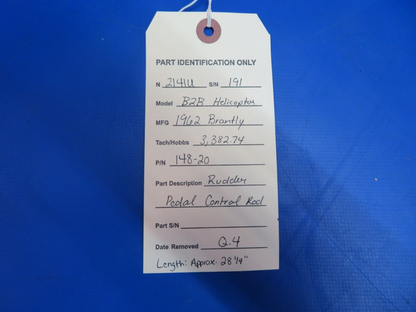 PART IDENTIFICATION ONLY
N 2141U S/N 191
Model B2B Helicopter
MFG 1962 Brantly
Tach/Hobbs 3,382.74
P/N 148-20
Part Description Rudder
Pedal Control Rod
Part S/N
Date Removed Q.4
Length: Approx. 28 1/4"